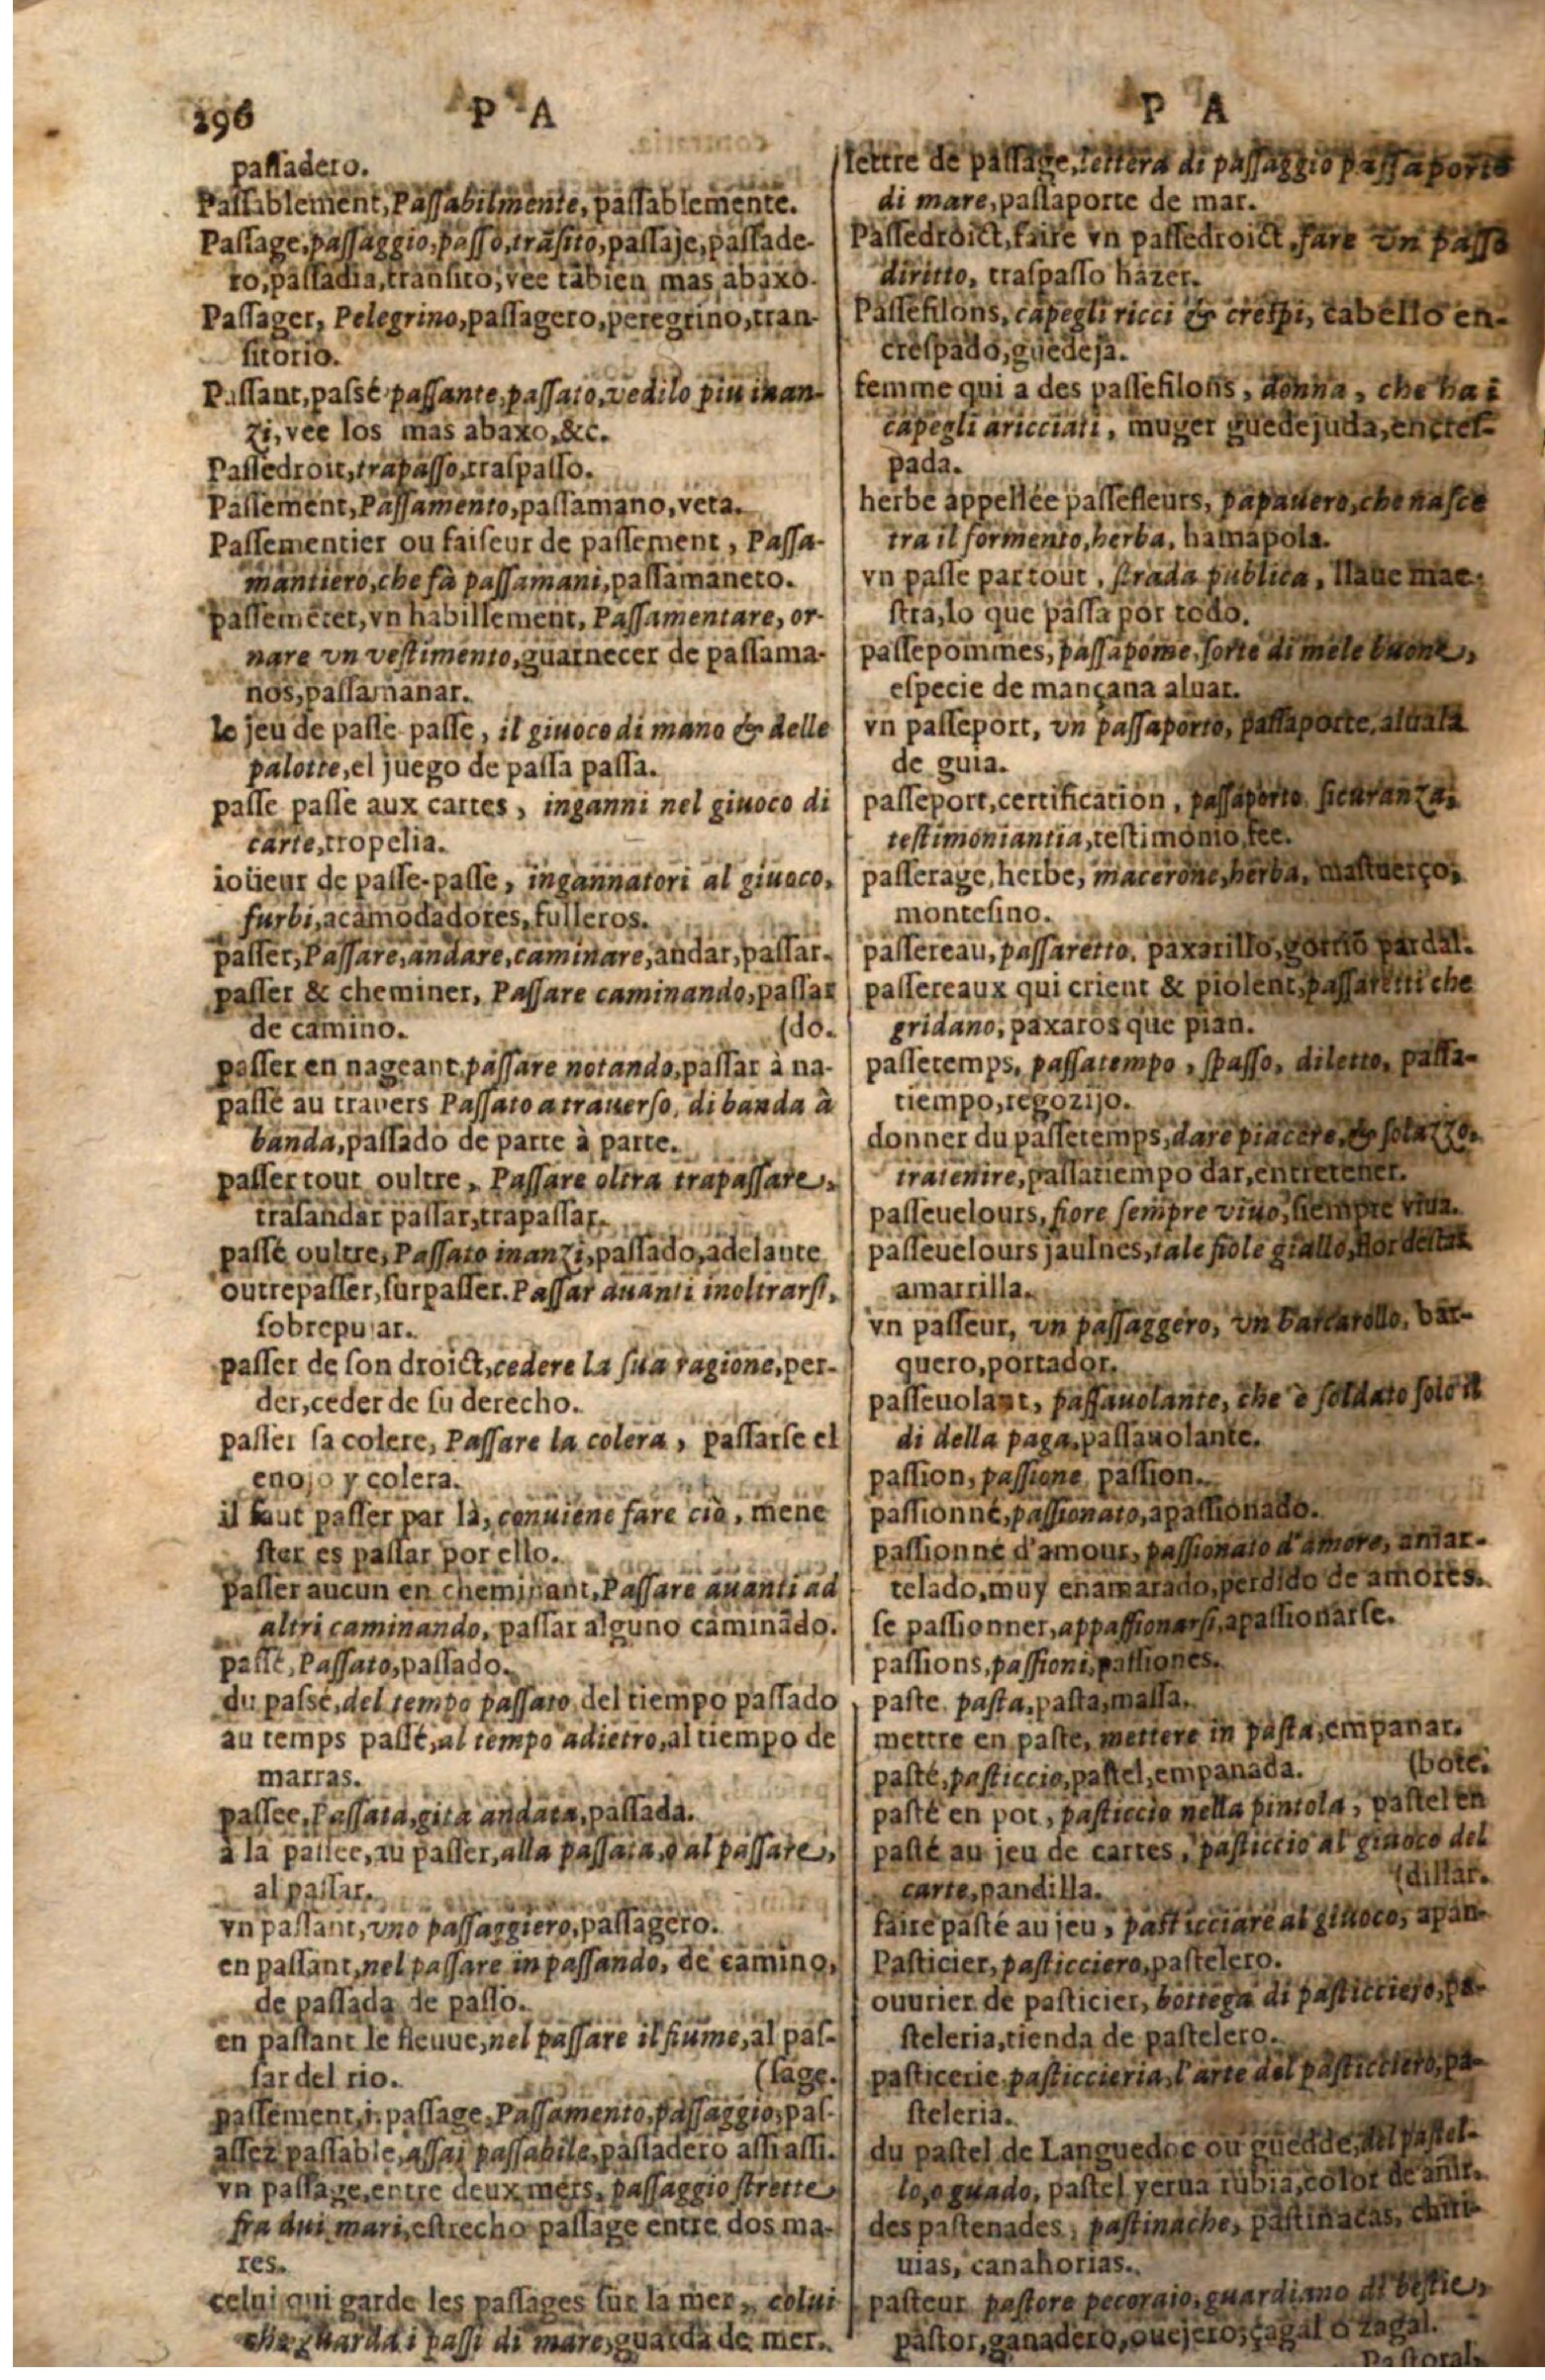 296 P A
passadero.
Passablement, Passabilmente, passablemente.
Passage, passaggio, passo, trãsito, passaje, passade-
ro, passadia, transito, vee tãbien mas abaxo.
Passager, Pelegrino, passagero, peregrino, tran-
sitorio.
Passant, passé passante, passato, vedilo piu inan-
zi, vee los mas abaxo, &c.
Passedroit, trapasso, traspasso.
Passement, Passamento, passamano, veta.
Passementier ou faiseur de passement, Passa-
mantiero, che fà passamani, passamanero.
passemẽter, vn habillement, Passamentare, or-
nare vn vestimento, guarnecer de passama-
nos, passamanar.
le jeu de passe passe, il giuoco di mano & delle
palotte, el juego de passa passa.
passe passe aux cartes, inganni nel giuoco di
carte, tropelia.
ioüeur de passe-passe, ingannatori al giuoco,
furbi, acamodadores, fulleros.
passer, Passare, andare, caminare, andar, passar.
passer & cheminer, Passare caminando, passar
de camino. (do.
passer en nageant, passare notando, passar à na-
passé au travers Passato a trauerso, di banda à
banda, passado de parte à parte.
passer tout oultre, Passare oltra trapassare,
trasandar passar, trapassar.
passé oultre, Passato inanzi, passado, adelante
outrepasser, surpasser. Passar auanti inoltrarsi,
sobrepujar.
passer de son droict, cedere la sua ragione, per-
der, ceder de su derecho.
passer sa colere, Passare la colera, passarse el
enojo y colera.
il faut passer par là, conuiene fare ciò, mene
ster es passar por ello.
passer aucun en cheminant, Passare auanti ad
altri caminando, passar alguno caminãdo.
passé, Passato, passado.
du passé, del tempo passato, del tiempo passado
au temps passé, al tempo adietro, al tiempo de
marras.
passee, Passata, gita andata, passada.
à la passee, au passer, alla passata, o al passare,
al passar.
vn passant, vno passaggiero, passagero.
en passant, nel passare in passando, de camino,
de passada de passo.
en passant le fleuue, nel passare il fiume, al pas-
sar del rio. (sage.
passement, i. passage, Passamento, passaggio, pas-
assez passable, assai passabile, passadero assi assi.
vn passage, entre deux mers, passaggio strette
fra dui mari, estrecho passage entre dos ma-
res.
celui qui garde les passages sur la mer, colui
che guarda i passi di mare, guarda de mer.
P A
lettre de passage, lettera di passaggio passaporto
di mare, passaporte de mar.
Passedroict, faire vn passedroict, fare vn passo
diritto, traspasso hazer.
Passefilons, capegli ricci & crespi, cabello en-
crespado, guedeja.
femme qui a des passefilons, donna, che ha i
capegli aricciati, muger guedejuda, encres-
pada.
herbe appellée passefleurs, papauero, che nasce
tra il formento, herba, hamapola.
vn passe partout, strada publica, llaue mae-
stra, lo que passa por todo.
passepommes, passapome, sorte di mele buone,
especie de mançana aluar.
vn passeport, vn passaporto, passaporte, aluala
de guia.
passeport, certification, passaporto sicuranza,
testimoniantia, testimonio, fee.
passerage, herbe, macerone, herba, mastuerço,
montesino.
passereau, passaretto, paxarillo, gorrio pardal.
passereaux qui crient & piolent, passaretti che
gridano, paxaros que pian.
passetemps, passatempo, spasso, diletto, passa-
tiempo, regozijo.
donner du passetemps, dare piacere, & solazzo,
tratenire, passatiempo dar, entretener.
passeuelours, fiore sempre viuo, siempre viua.
passeuelours jaulnes, tale fiole giallo, flor
amarrilla.
vn passeur, vn passaggero, vn barcarollo, bar-
quero, portador.
passeuolant, passauolante, che è soldato solo il
di della paga, passauolante.
passion, passione passion.
passionné, passionato, apassionado.
passionné d'amour, passionato d'amore, amar-
telado, muy enamarado, perdido de amores.
se passionner, appassionarsi, apassionarse.
passions, passioni, passiones.
paste pasta, pasta, massa.
mettre en paste, mettere in pasta, empanar.
pasté, pasticcio, pastel, empanada. (bote.
pasté en pot, pasticcio nella pintola, pastel en
pasté au jeu de cartes, pasticcio al giuoco del
carte, pandilla. (dillar.
faire pasté au jeu, pasticciare al giuoco, apan-
Pasticier, pasticciero, pastelero.
ouurier de pasticier, bottega di pasticciero, pa-
steleria, tienda de pastelero.
pasticerie pasticcieria, l'arte del pasticciero, pa-
steleria.
du pastel de Languedoc ou guedde, del pastel-
lo, o guado, pastel yerua rubia, color de anir.
des pastenades, pastinache, pastinacas, chiri-
uias, canahorias.
pasteur pastore pecoraio, guardiano di bestie,
pastor, ganadero, ouejero, çagal o zagal.
Pastoral,